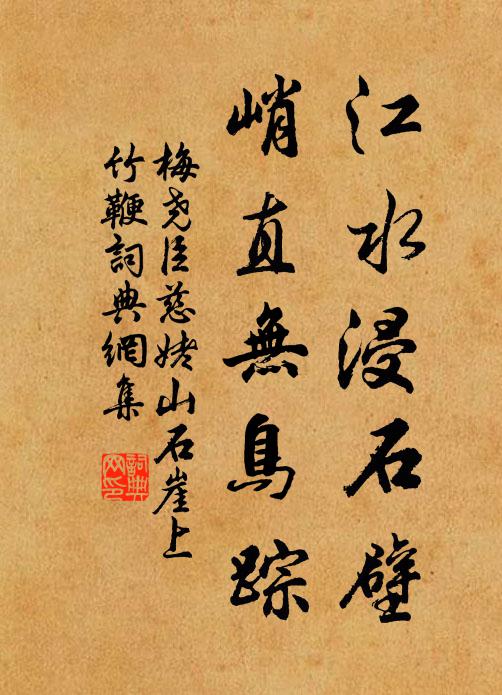 江水浸石壁
峭直無鳥踪
梅尧臣慈姥山石崖上
竹鞭詞典網集
詞典
网印